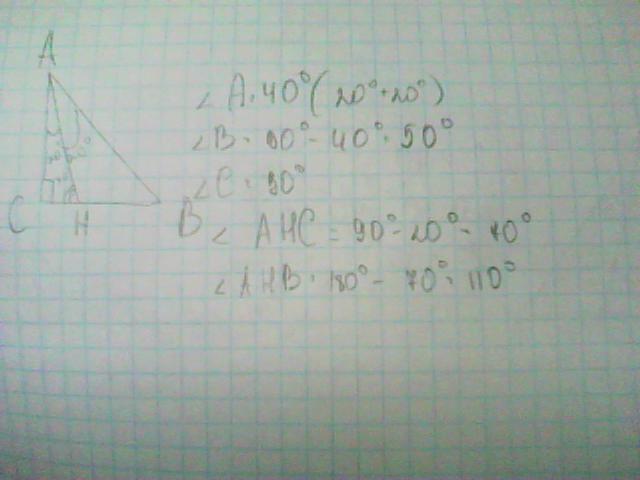 A
∠ A = 40° (20° + 20°)
∠B = 90° - 40° = 50°
∠C = 90°
C H B
∠ AHC = 90° - 20° = 70°
∠AHB = 180° - 70° = 110°